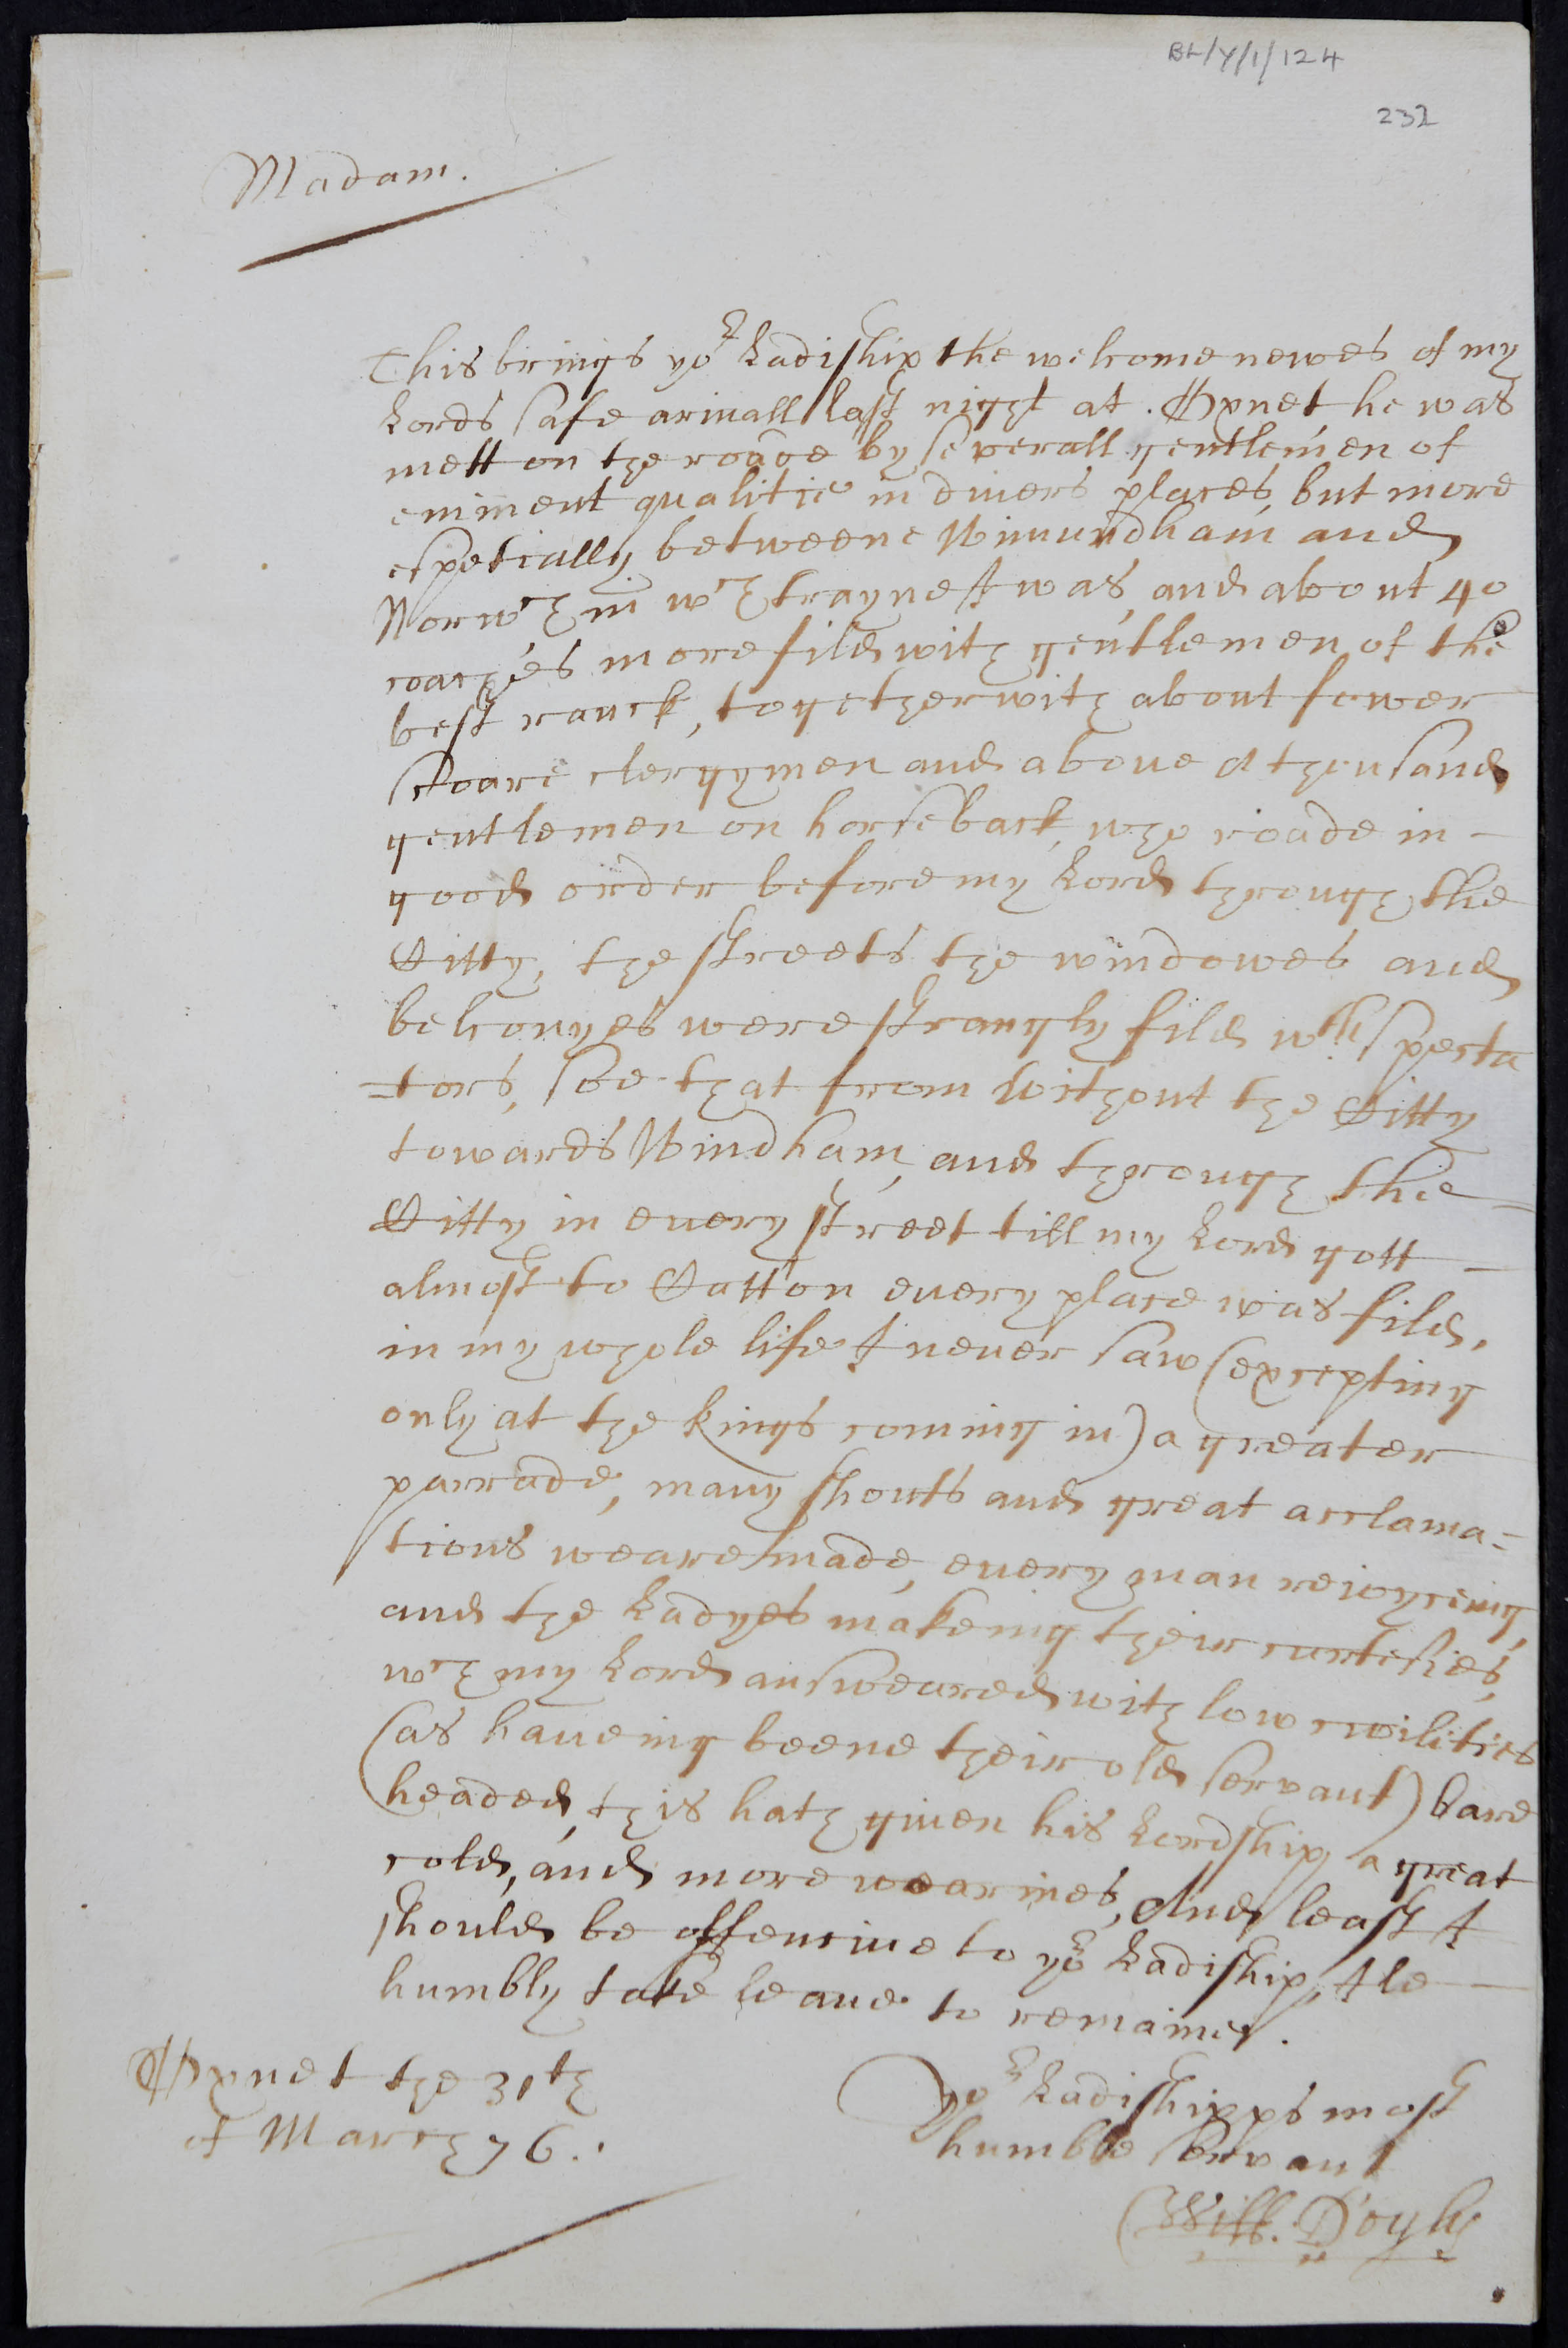 BL/Y/1/124
232
Madam.
This brings yor Ladiship the welcome newes of my
Lords safe ariuall last night at . Oxnet he was
mett on the roade by severall gentlemen of
eminent qualitie in divers places, but more
espetially betweene Wimundham and
Norwch in wch trayne I was, and about 40
coaches more fild with gentlemen of the
best ranck, together with about fower
scoare clergymen and aboue A thousand
gentlemen on horseback, who roade in -
good order before my Lord through the
Citty, the streets the windowes and
belconyes were strangly fild wth specta
=tors, soe that from without the Citty
towards Windham, and through the
Citty in euery street till my Lord gott
almost to Catton euery place was fild,
in my whole life I neuer saw (excepting
only at the kings coming in) a greater
parrade, many shouts and great acclama=
tions weare made, euery man reioyceing,
and the Ladyes makeing their curtesies,
wch my Lord answeared with low civilities
(as haueing beene their old servant) bare
headed, this hath giuen his Lordship a great
cold, and more wearines, And least I
should be offenciue to yor Ladiship, Ile
humbly take leaue to remaine.
Oxnet the 31th
of March 76.
Yor Ladishipps most
humble Servant
Will. D'oyly